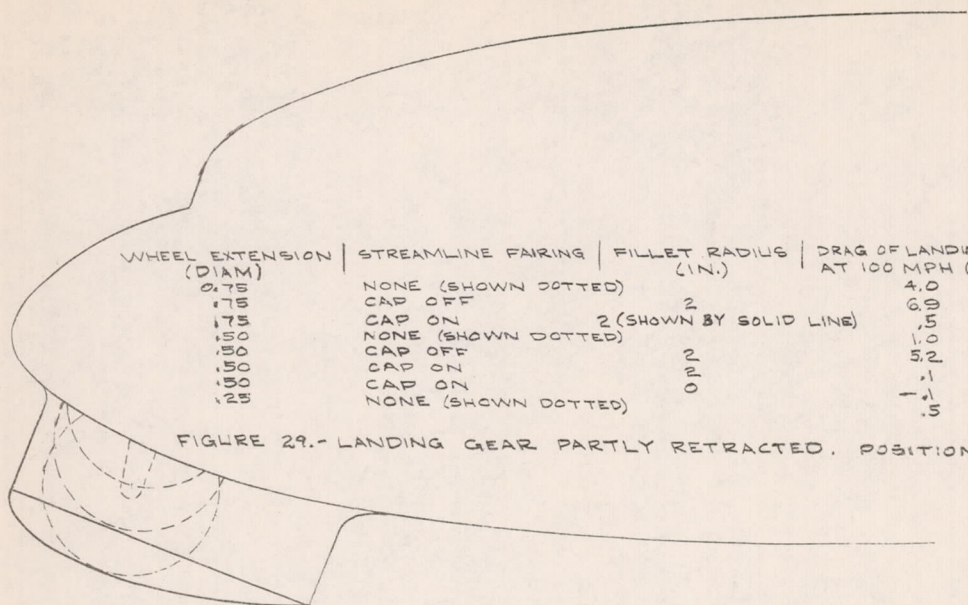 WHEEL EXTENSION | STREAMLINE FAIRING | FILLET RADIUS | DRAG OF LANDI
(DIAM) (IN.) AT 100 MPH (
0.75 NONE (SHOWN DOTTED) 4.0
.75 CAP OFF 2 6.9
.75 CAP ON 2 (SHOWN BY SOLID LINE) .5
.50 NONE (SHOWN DOTTED) 1.0
.50 CAP OFF 2 5.2
.50 CAP ON 2 .1
.50 CAP ON 0 -.1
.25 NONE (SHOWN DOTTED) .5
FIGURE 29.- LANDING GEAR PARTLY RETRACTED. POSITION